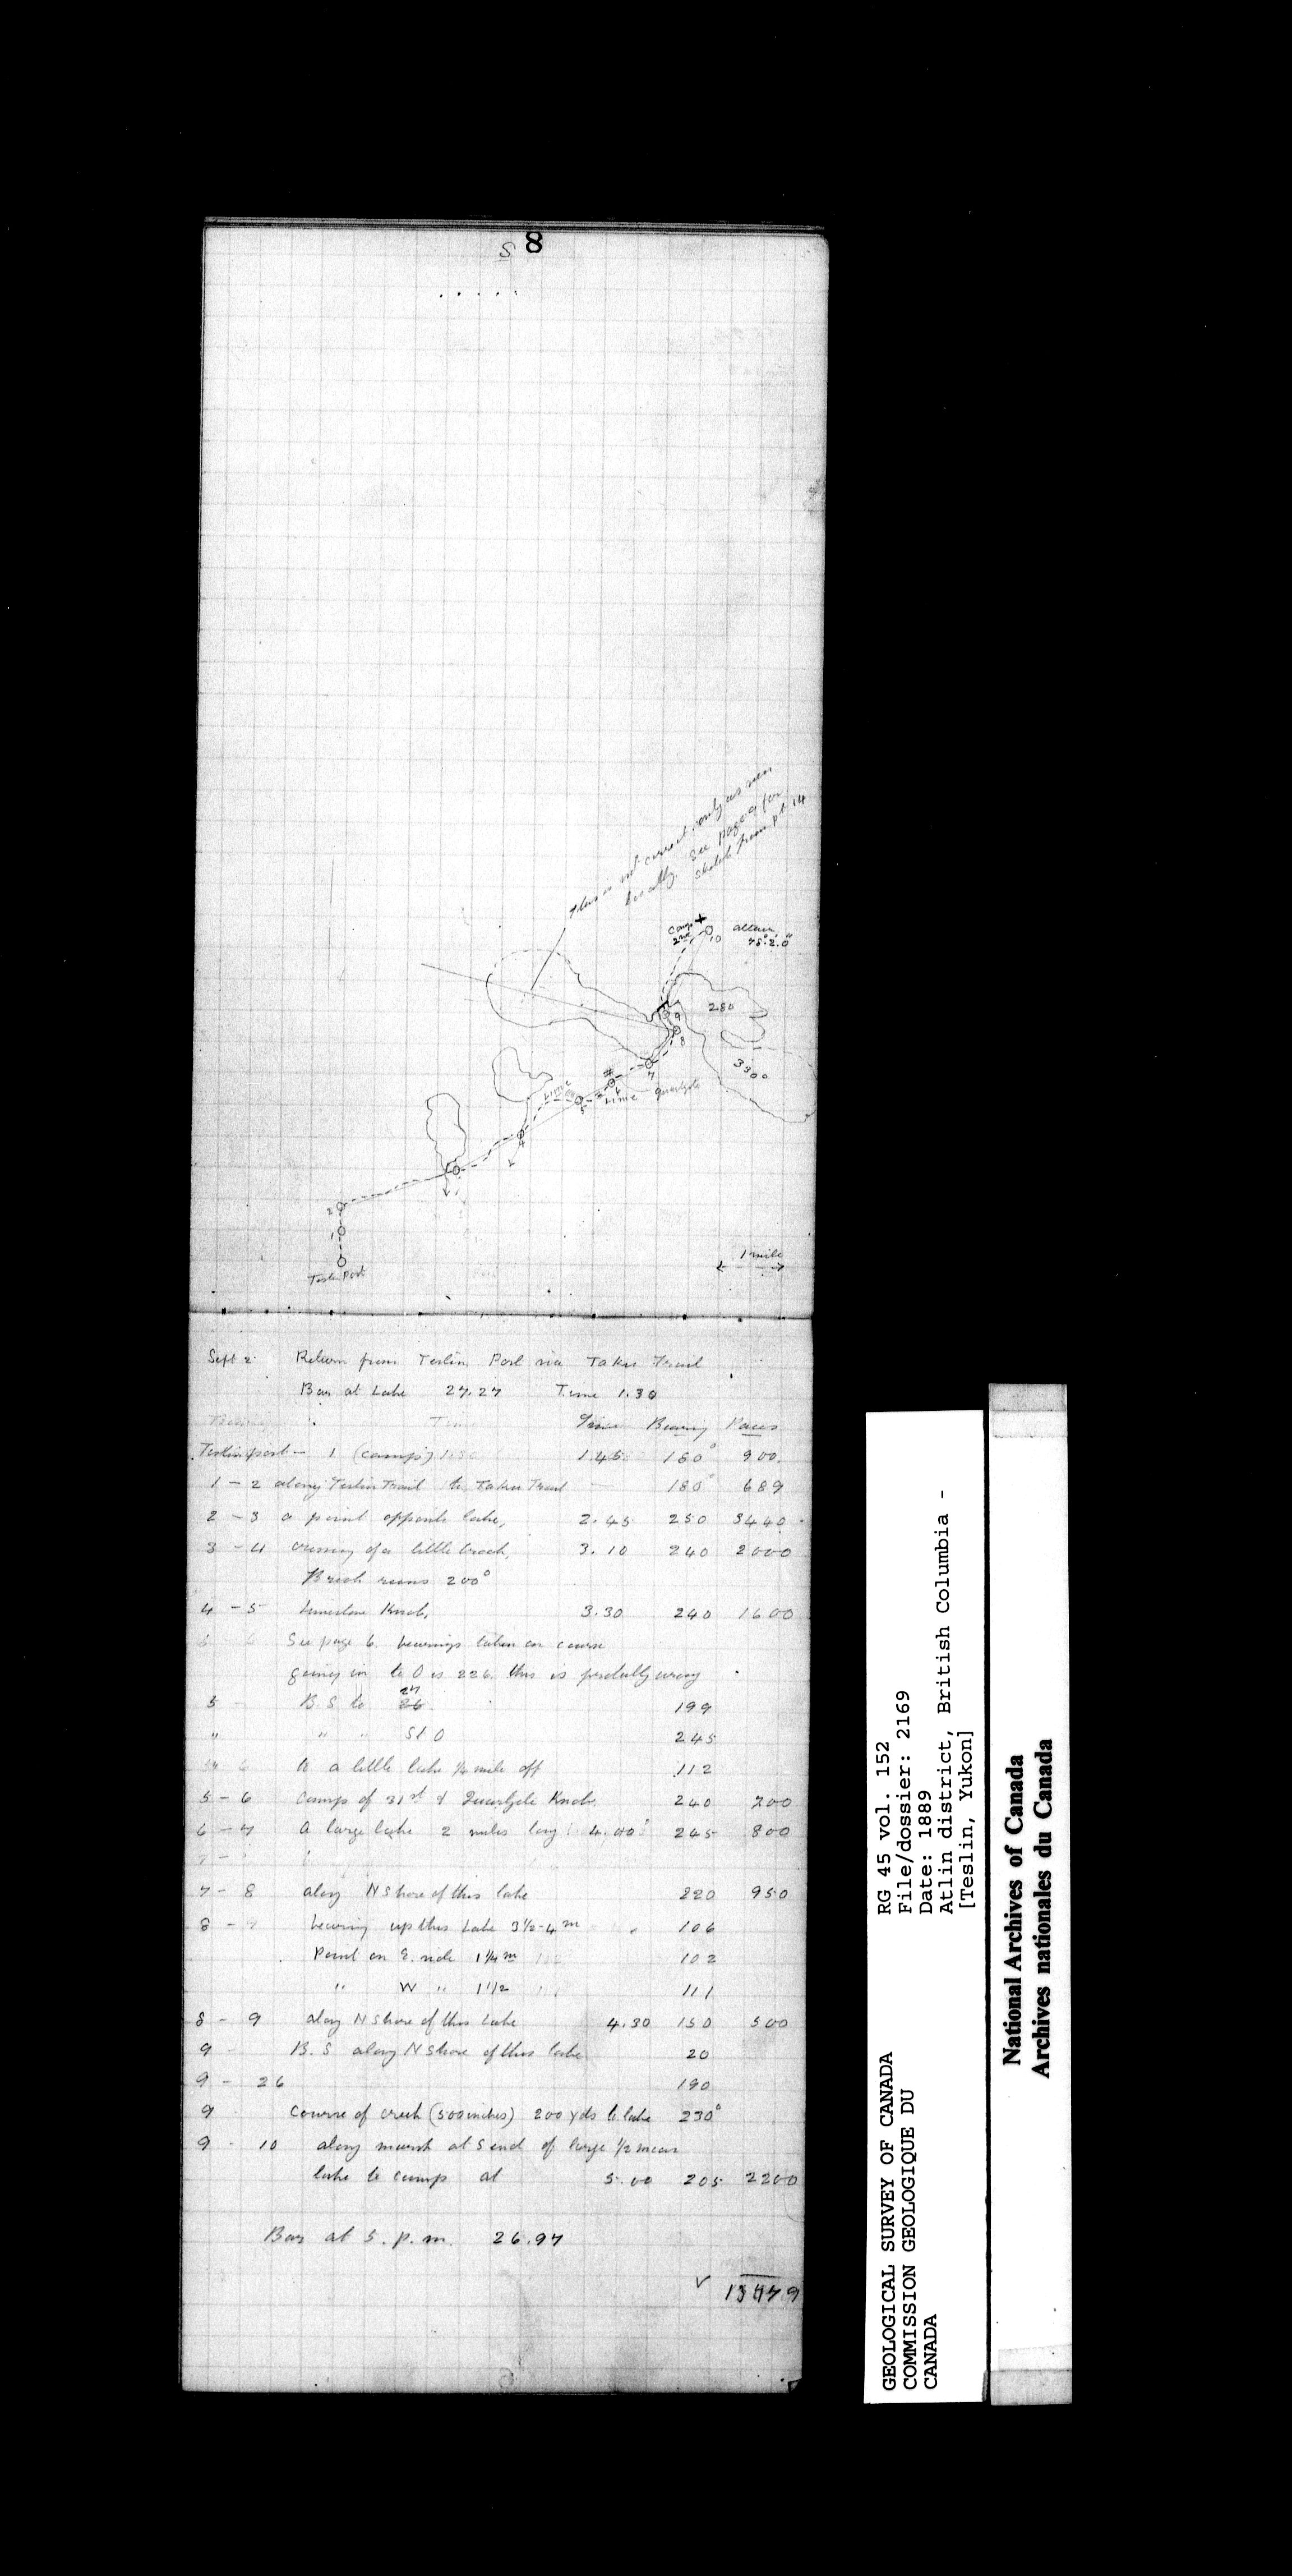 S 8
This is not correct only as seen
locally. See page 9 for
sketch from pt 14
Camp
2nd
10
Altitu.
75°.2.0"
280
9
8
3300
7
#
Lime
6
5
Lime Quartzite
4
2
1
Teslin Post
1 mile
Sept 2 Return from Teslin Post via Taku Trail
Bar at Lake 27.27 Time 1.30
Time Bearing Paces
Teslin post - 1 (camp) 1.45 180° 900
1 - 2 along Teslin Trail to Taku Trail — 180° 689
2 - 3 a point opposite lake, 2.45 250 3440
3 - 4 crossing of a little brook, 3.10 240 2000
Brook runs 200°
4 - 5 Limestone Knob, 3.30 240 1600
See page 6. bearings taken on course
going in to O is 226 this is probably wrong
5 - B.S to 27 26 199
" " " St O 245
to a little lake 1/4 mile off 112
5 - 6 Camp of 31st & Quartzite Knob 240 200
6 - 7 A large lake 2 miles long 4.00 245 800
7 - 8 along N Shore of this lake 220 950
8 - bearing up this Lake 3 1/2-4 m 106
Point on E. side 1 1/4 m 102
" W " 1 1/2 111
8 - 9 along N Shore of this Lake 4.30 150 500
9 - B.S along N Shore of this lake 20
9 - 26 190
9 Course of creek (500 inches) 200 yds to lake 230°
9 - 10 along marsh at S end of large 1/2 moon
lake to camp at 5.00 205 2200
Bar at 5. p.m. 26.97
✓ 13479
GEOLOGICAL SURVEY OF CANADA
COMMISSION GEOLOGIQUE DU
CANADA
RG 45 vol. 152
File/dossier: 2169
Date: 1889
Atlin district, British Columbia -
[Teslin, Yukon]
National Archives of Canada
Archives nationales du Canada